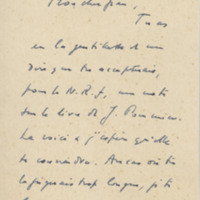 Mon cher Jean,
Tu as
eu la gentillesse de me
dire que tu accepterais,
pour la N.R.F, une note
sur le livre de J. Pommier.
La voici et j'espère qu'elle
te conviendra. Au cas où tu
la jugerais trop longue, je te